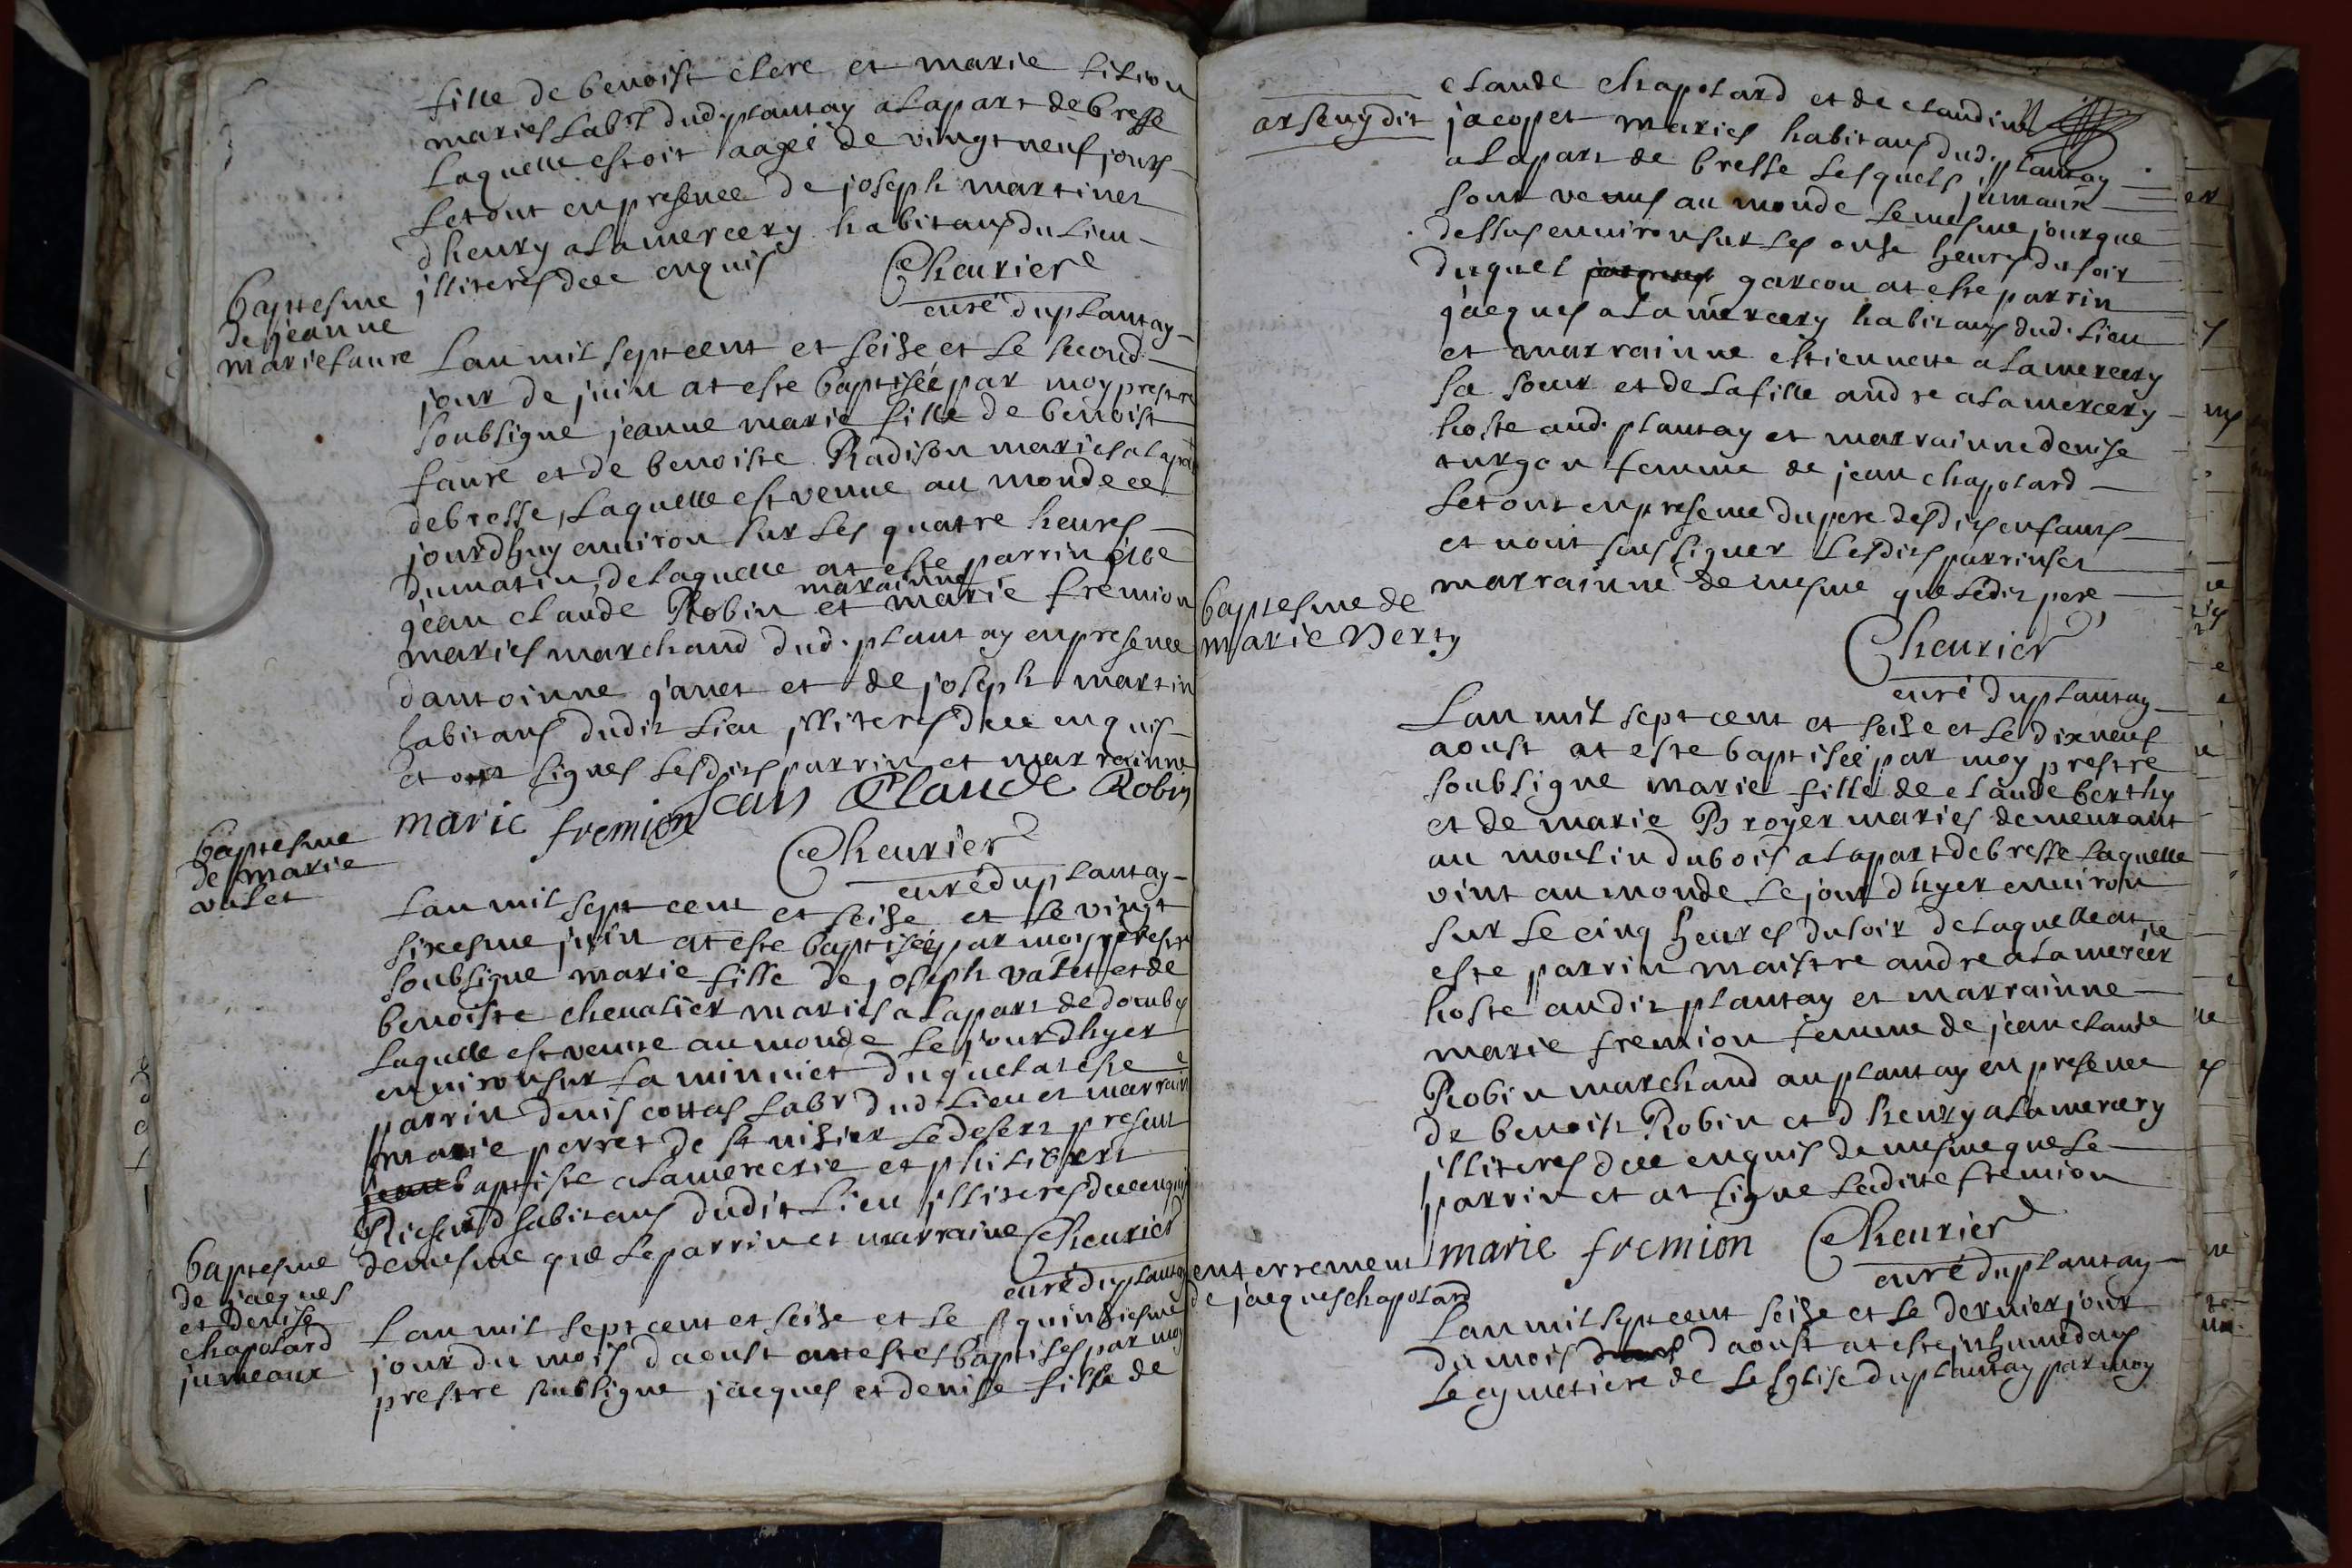 fille de benoist clere et marie
maries lab.r dud. plantay a la part de bresse
laquelle estoit aagée de vingt neuf jours
le tout en presence de joseph martinet
dhenry alamercery habitans du lieu
illiterés dece enquis
Cheurier
curé du plantay
baptesme
de jeanne
marie faure
Lan mil sept cent et seise et le second
jour de juin at este baptisée par moy prestre
soubsigne jeanne marie fille de benoist
faure et de benoiste Radison maries a la part
de bresse, laquelle est venue au monde ce
jourdhuy environ sur les quatre heures
du matin, de laquelle at este parrin
jean claude Robin et marrainne marie fremion
maries marchand dud. plantay en presence
dantoinne janet et de joseph martin
habitans dudit lieu illiteres dece enquis
et ont signes lesdits parrin et marrainne
marie fremion Jean Claude Robin
Cheurier
curé du plantay
baptesme
de marie
valet
Lan mil sept cent et seise et le vingt
sixesme juin at este baptisée par moy prestre
soubsigne marie fille de joseph valet et de
benoiste chevalier maries a la part de dombes
laquelle est venue au monde le jourdhyer
environ sur la minuict duquel at este
parrin denis cottas lab.r dud. lieu et marrain
marie perret de st nisier le desert present
jean baptiste alamercerie et philibert
habitans dudit lieu illiteres dece enquis
de mesme que le parrin et marraine Cheurier
curé du plantay
baptesme
de jacques
et denise
chapolard
jumeaux
Lan mil sept cent et seise et le quinsiesme
jour du mois daoust at estes baptises par moy
prestre soubsigne jacques et denise fille de
claude chapolard et de claudine
arseny dit jacopet maries habitans dud. plantay
a la part de bresse lesquels jumaux
sont venus au monde le mesme jour que
dessus environ sur les onse heures du soir
duquel garcon at este parrin
jacques alamercery habitans dud. lieu
et marrainne estiennette alamercery
sa soeur et de la fille andre alamercery
hoste aud. plantay et marrainne denise
turgon femme de jean chapolard
le tout en presence du pere desdits enfants
et nont sous signer lesdits parrins et
marrainne de mesme que ledit pere
Cheurier
curé du plantay
baptesme de
marie Berty
Lan mil sept cent et seise et le dixneuf
aoust at este baptisée par moy prestre
soubsigne marie fille de claude berthy
et de marie Broyer maries demeurant
au moulin du bois a la part de bresse laquelle
vint au monde le jour dhyer environ
sur le cinq heures du soir de laquelle at
este parrin maistre andre alamercer
hoste audit plantay et marrainne
marie fremion femme de jean claude
Robin marchand au plantay en presence
de benoist Robin et dhenry alamercery
illiteres dece enquis de mesme que le
parrin et at signe laditte fremion
marie fremion Cheurier
curé du plantay
enterrement
de jacques chapolard
Lan mil sept cent seise et le dernier jour
du mois daoust at este inhumé dans
le cymetiere de leglise du plantay par moy